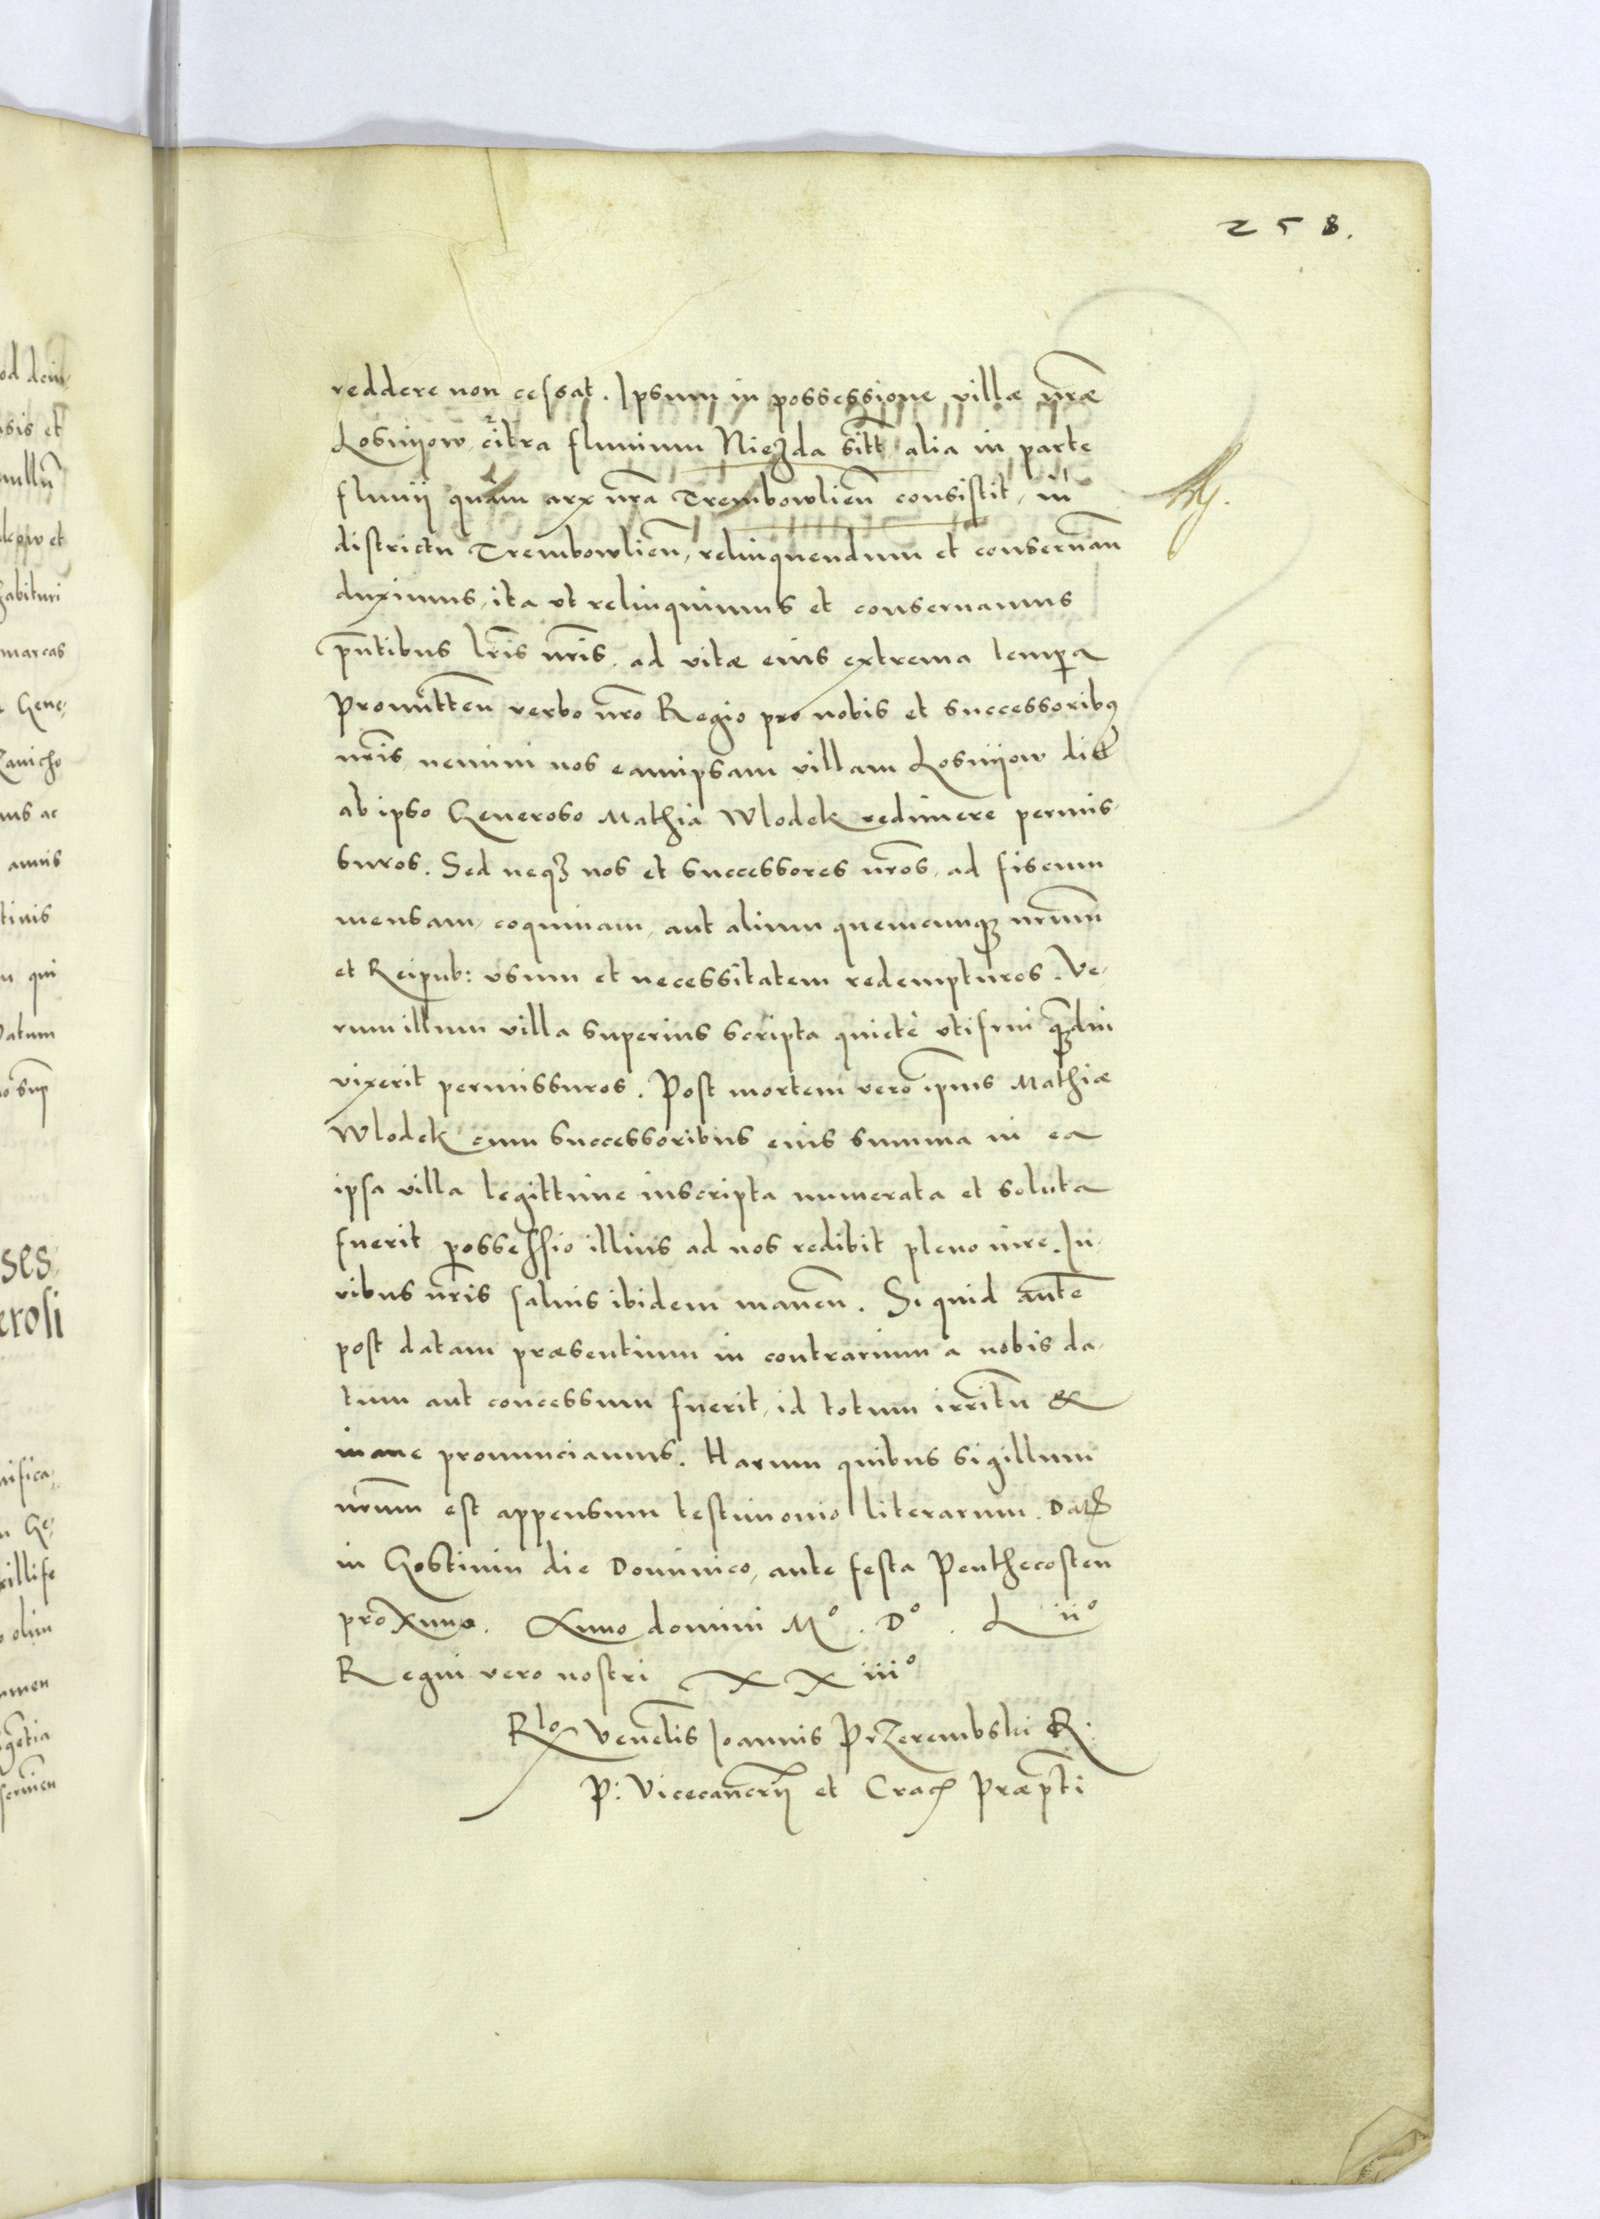 258.
reddere non cessat. Ipsum in possessione villæ nræ
Losniow, citra fluuium Niezda sitt alia in parte
fluuij quam arx nra Trembowlien consistit, in
districtu Trembowlien, relinquendum et conseruan
duximus, ita vt relinquimus et conseruamus
pntibus lris nris, ad vitæ eius extrema tempa
Promitten verbo nro Regio pro nobis et successoribus
nris, nemini nos eamipsam villam Losniow dict
ab ipso Generoso Mathia Wlodek redimere permis,
suros. Sed neq3 nos et successores nros, ad fiscum
mensam, coquinam, aut alium quemcunq3 nrum
et Reipub: vsum et necessitatem redempturos. Ve,
rum illum villa superius scripta quietè vtifrui q3diu
vixerit permissuros. Post mortem vero ipius Mathiæ
Wlodek cum successoribus eius summa in ea
ipsa villa legittime inscripta numerata et soluta
fuerit possessio illius ad nos redibit pleno iure. Iu,
ribus nris saluis ibidem manen. Si quid aute
post datam præsentium in contrarium a nobis da,
tum aut concessum fuerit, id totum irritu &
inane pronunciamus. Harum quibus sigillum
nrum est appensum testimonio literarum. Dat
in Gostinin die Dominico, ante festa Penthecosten
proximo. Anno domini M° . D° . L ii°
Regni vero nostri XX iii°
Rlo Venelis Ioannis Przerembski R.
P: Vicecancrij et Crac Præpti
od dein,
sis et
nullu
et
habituri
marcas
Gene,
Zauicho
ac
annis
tinis
qui
Datum
sup
ses,
erosi
nifica,
Ge,
olim